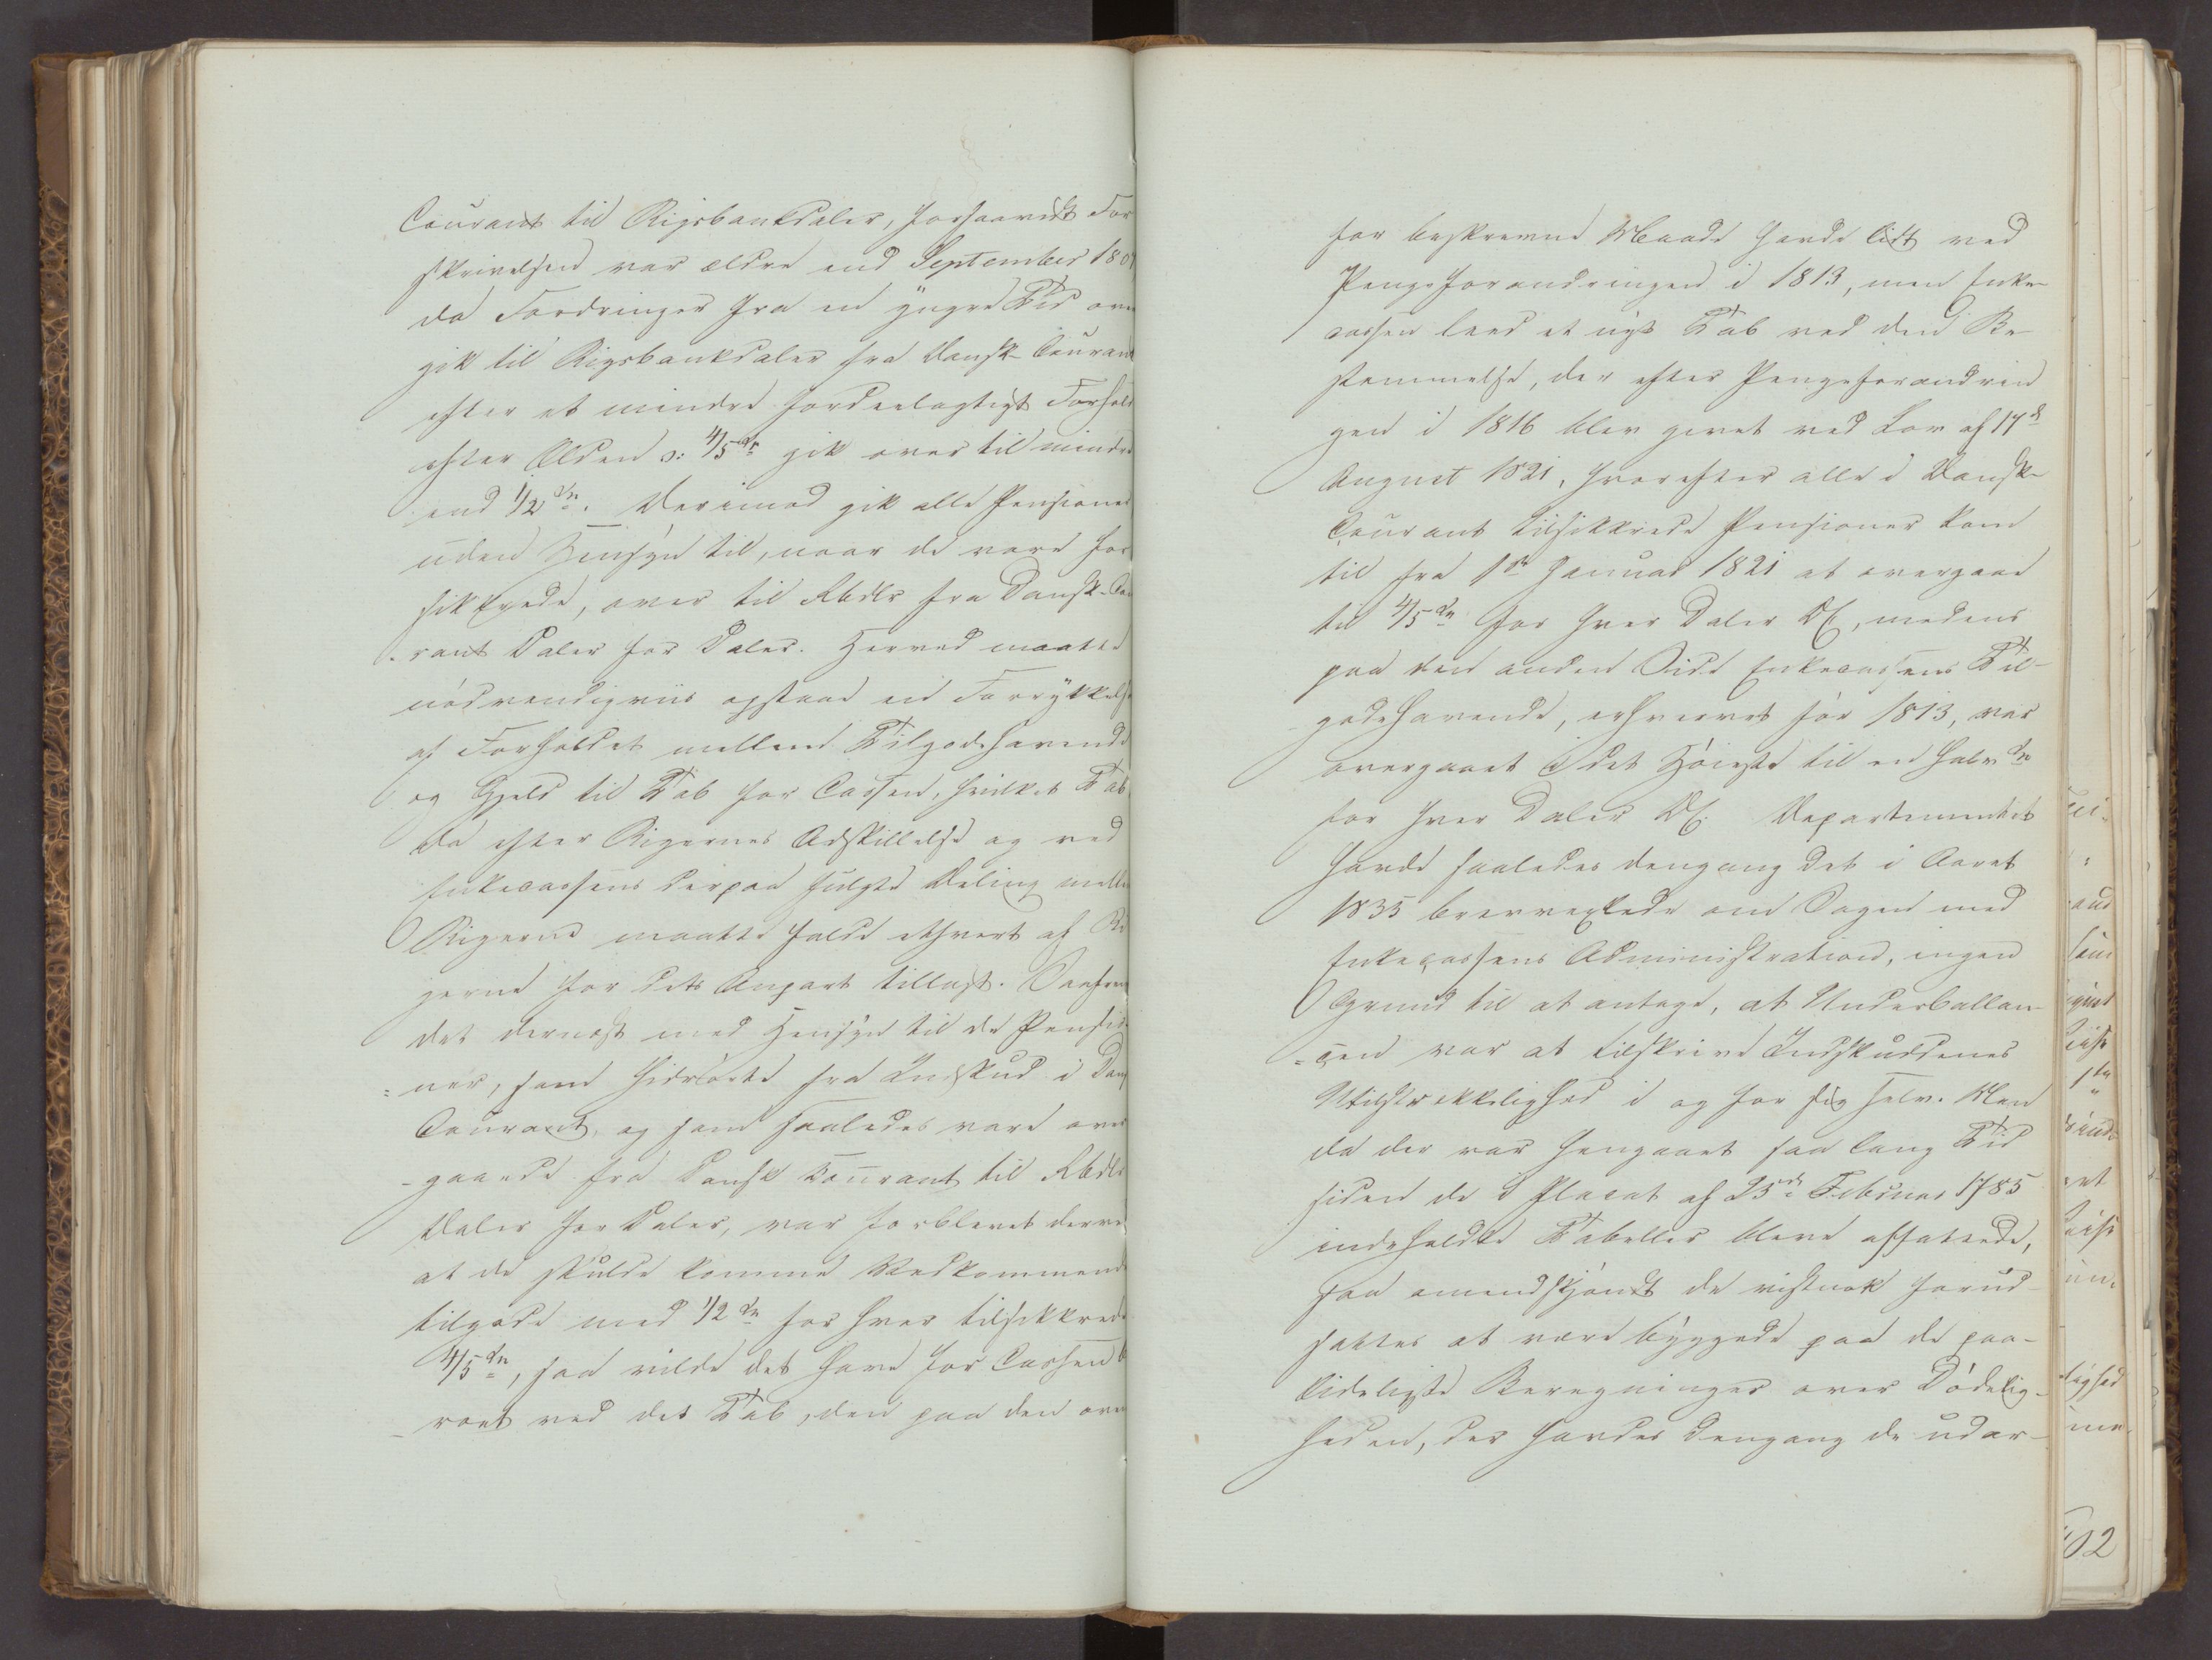 Courant til Rigsbankdaler, forsaavidt For
skrivelsen var ældre end September 180
da Fordringer fra en yngre Tid over
gik til Rigsbankdaler fra Dansk Courant
efter et mindre fordeelagtigt Forhold
efter Olden o: 4/5 gik over til mindre
end 1/2. Derimod gik alle Pensioner
uden Hensyn til, naar de vare for
sikkrede, over til Rbdlr fra Dansk-Cou
rant Daler for Daler. Herved maatte
nödvendigviis opstaae en Forrykkelse
af Forholdet mellem Tilgodehavende
og Gjeld til Tab for Cassen, hvilket Tab
da efter Rigernes Adskillelse og ved
Enkecassens derpaa fulgte Deling mellem
Rigerne maatte falde ethvert af Ri
gerne for dets Anpart tillast. Saafremt
det dernæst med Hensyn til de Pensio
=ner, som hidrörte fra Indskud i Dansk
Courant, og som saaledes vare over
-gaaede fra Dansk Courant til Rbdlr
Daler for Daler, var forblevet derved
at de skulde komme Vedkommende
tilgode med 1/2 for hver tilsikkrede
4/5, saa vilde det have for Cassen b
-roet ved det Tab, den paa den oven
for beskrevne Maade havde lidt ved
Pengeforandringen i 1813, men Enke-
cassen leed et nyt Tab ved den Be-
stemmelse, der efter Pengeforandrin
gen i 1816 blev givet ved Lov af 17de
August 1821, hvorefter alle i Dansk-
Courant tilsikkrede Pensioner kom
til fra 1ste Januar 1821 at overgaae
til 4/5 for hver Daler DC, medens
paa den anden Side Enkecassens Til-
godehavende, erhvervet för 1813, var
overgaaet i det Höieste til en halv
for hver Daler DC. Departementet
havde saaledes dengang det i Aaret
1835 brevvexlede om Sagen med
Enkecassens Administration, ingen
Grund til at antage, at Underballan-
=cen var at tilskrive Indskuddenes
Utilstrækkelighed i og for sig selv. Men
da der var hengaaet saa lang Tid
siden de i Placat af 25de Februar 1785
indeholdte Tabeller bleve affattede,
saa omendskjöndt de vistnok forud-
sattes at være byggede paa de paa-
lideligste Beregninger over Dödelig-
heden, der havdes dengang de udar-